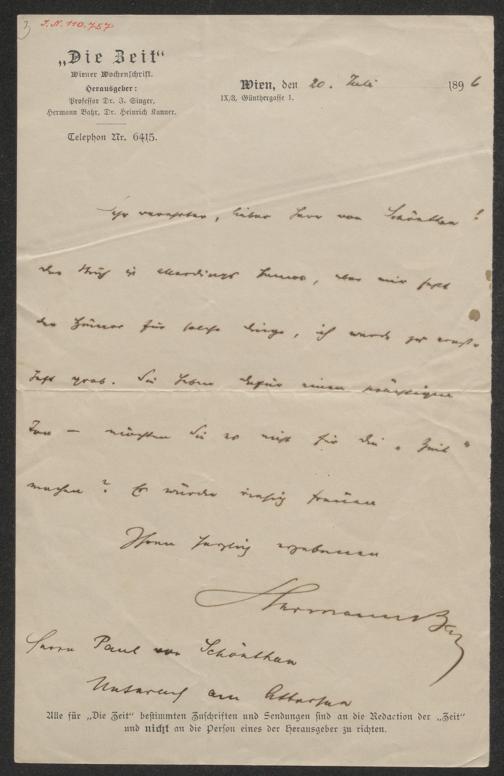 3
I.N. 110.757
„Die Zeit“
Wiener Wochenschrift.
Herausgeber:
Professor Dr. I. Singer,
Hermann Bahr, Dr. Heinrich Kanner.
Telephon Nr. 6415.
Wien, den 20. Juli 1896
IX/3, Günthergasse 1.
Sehr verehrter, lieber Herr von Schönthan!
das Buch ist allerdings famos, aber mir fehlt
der Humor für solche Dinge, ich werde zu
grob. Sie haben dafür einen
Ton – möchten Sie es nicht für die „Zeit“
machen? Es würde riesig freuen
Ihren herzlich ergebenen
Hermann Bahr
Herrn Paul von Schönthan
Unterach am Attersee
Alle für „Die Zeit“ bestimmten Zuschriften und Sendungen sind an die Redaction der „Zeit“
und nicht an die Person eines der Herausgeber zu richten.